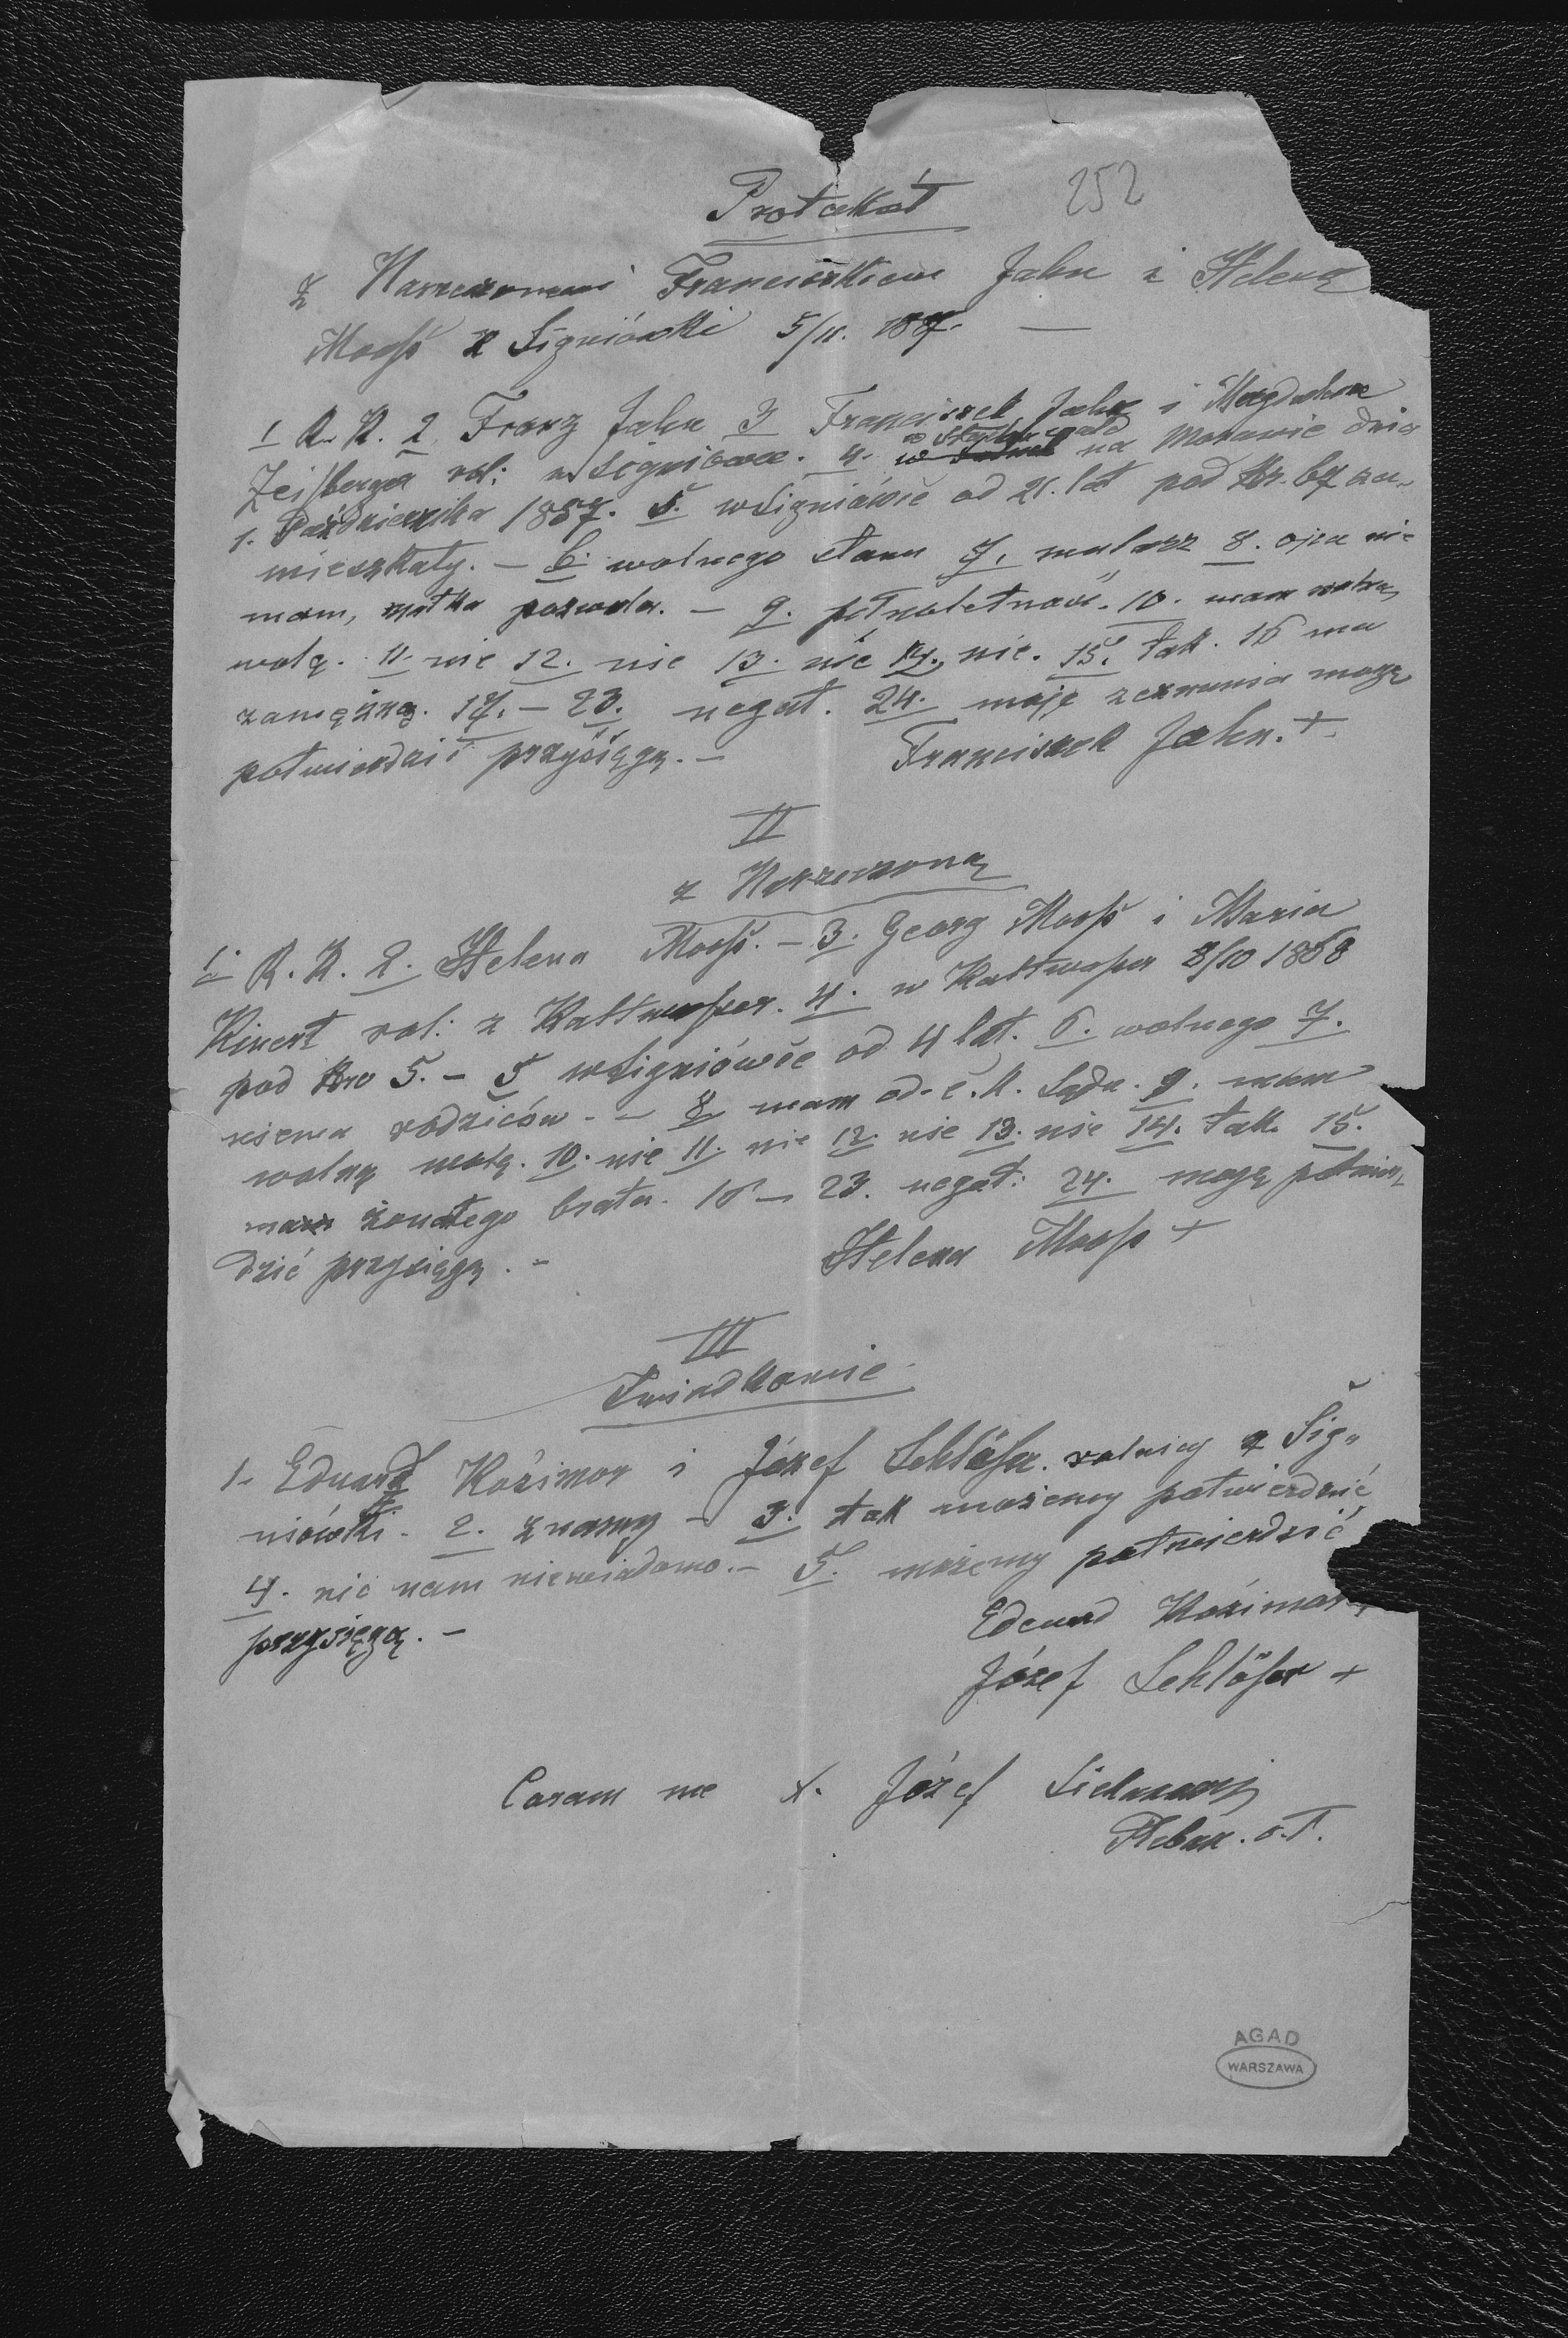 Protokół 252
z Narzeczonemi Franciszkiem Jahn i Heleną
Mooß z Signiówki 5/11. 188
1 R. K. 2. Franz Jahn 3 Franciszek Jahn i Magdalena
Zeisberger rol: w Signiówce. 4. na Morawie dnia
1. Października 1857. 5. w Signiówce od 21. lat pod Nr. 67 za-
mieszkały. – 6. wolnego stanu 7. malarz 8. ojca nie
mam, matka pozwala. – 9. pełnoletność. 10. mam wolną
wolę. 11. nie 12. nie 13. nie 14. nie. 15. tak. 16 ma
zamężną. 17. – 23. negat. 24. moje zeznania mogę
potwierdzić przysięgą. – Franciszek Jahn. +
II
z Narzeczoną
1. R. K. 2. Helena Mooß. – 3. Georg Mooß i Maria
Kinert rol: z Kaltwasser. 4. w Kaltwasser 8/10 1868
pod Nro 5. – 5 w Signiówce od 4 lat. 6. wolnego 7.
niema rodziców. – 8. mam od c. k. Sądu. 9. mam
wolną wolę. 10. nie 11. nie 12. nie 13. nie 14. tak 15.
mam żonatego brata. 16 – 23. negat: 24. mogę potwier-
dzić przysięgą. – Helena Mooß +
III
Świadkowie
1. Eduard Kozimor i Józef Schlößer rolnicy z Sig-
niówki. 2. znamy – 3. tak możemy potwierdzić
4. nic nam niewiadomo. – 5. możemy potwierdzić
przysięgą. – Edward Kozimor
Józef Schlößer +
Coram me X. Józef
o. ł.
AGAD
WARSZAWA